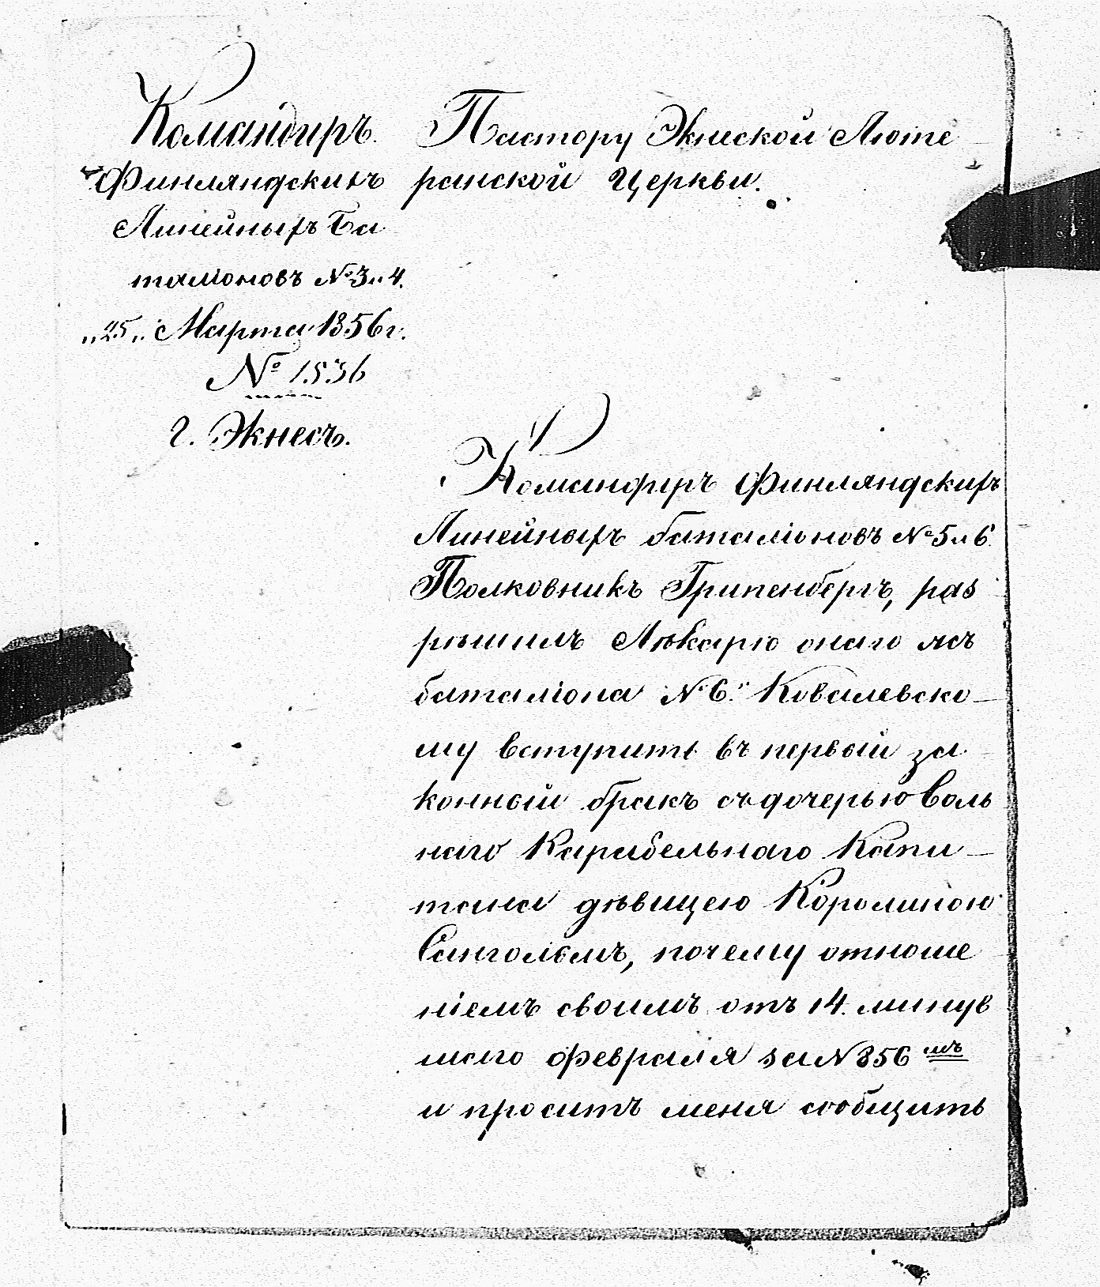 Командиръ
Финляндскихъ
Линейныхъ Ба
таліоновъ №3 и 4.
„25„ Марта 1856 г.
№ 1536
г. Экнесъ.
Пастору Экнеской Люте
ранской Церкви.
Командиръ Финляндскихъ
Линейныхъ баталіоновъ №5 и 6.
Полковникъ Грипенбергъ, раз
рѣшилъ Лѣкарю онаго
баталіона №6. Ковалевско
му вступить въ первый за
конный бракъ съ дочерью Воль
наго Карабельнаго Капи
тана дѣвицею Королиною
Сангольмъ, почему отноше
ніемъ своимъ отъ 14. минув
шаго февраля за №856 мъ
и проситъ меня сообщить